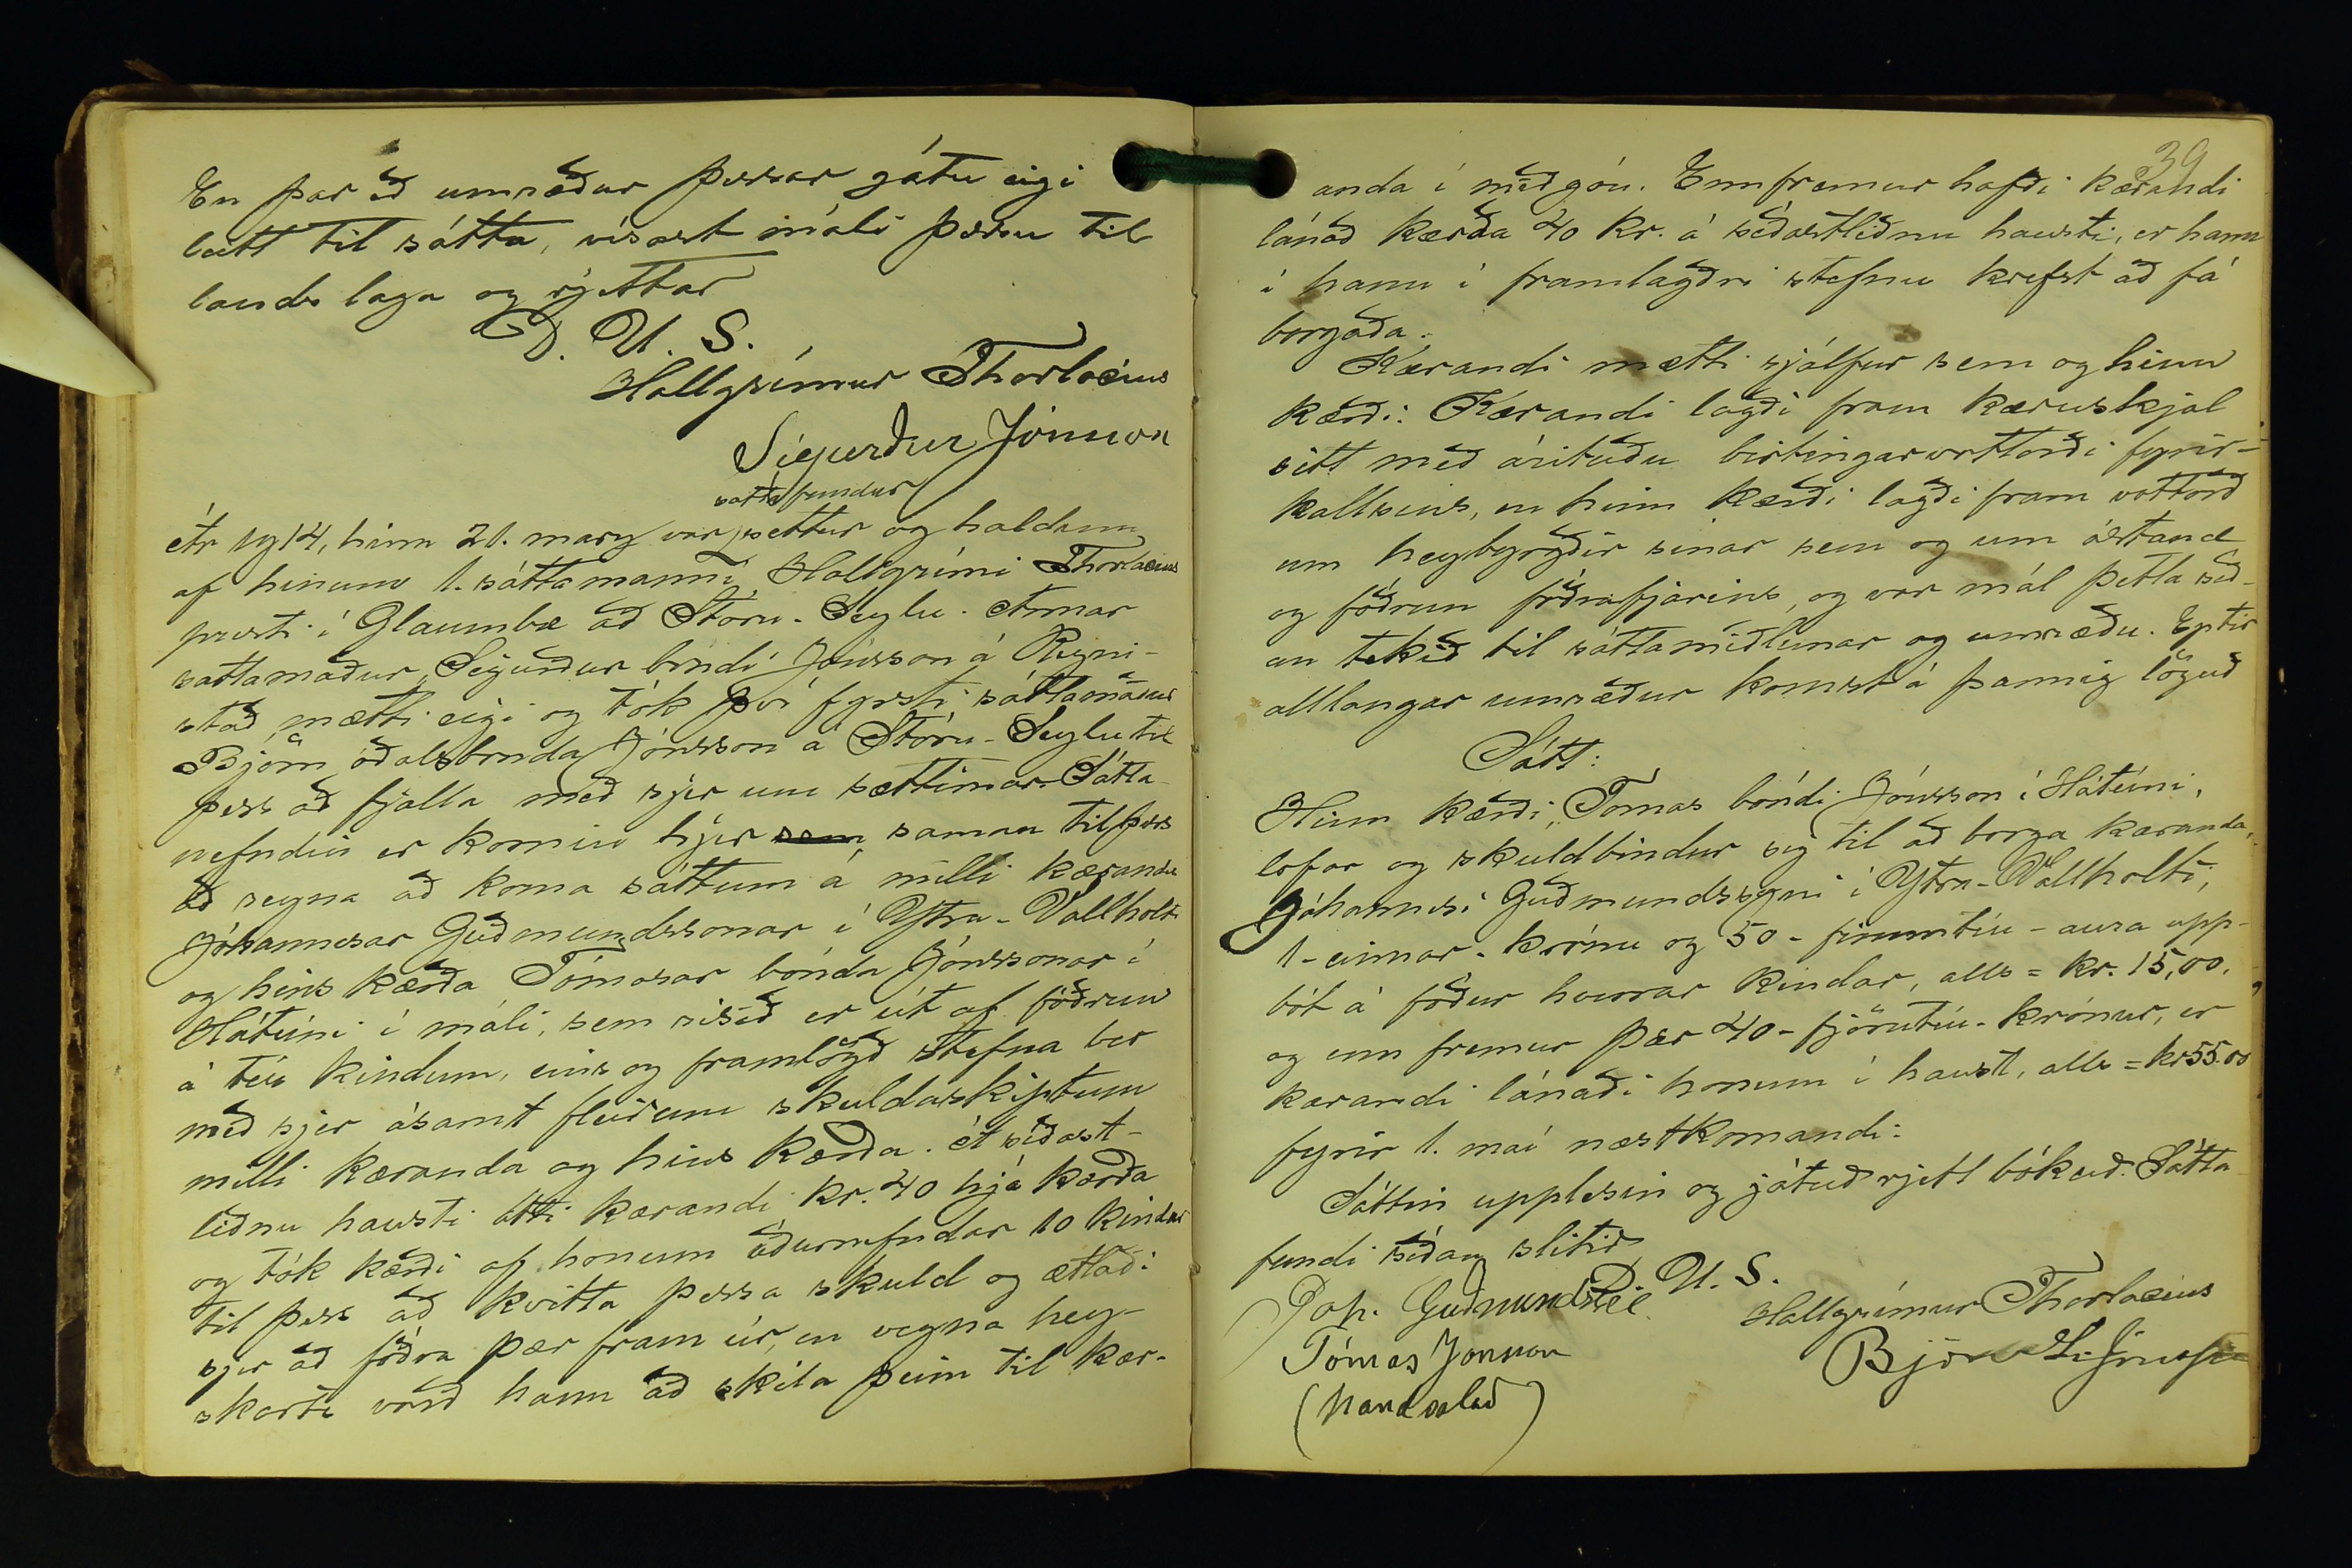 En þar eð umræður þessar gátu eigi
leitt til sátta, vísast máli þessu til
lands laga og rjettar
D. U. S.
Hallgrímur Thorlacius
Sigurður Jónsson
sáttafundur
Ár 1914, hinn 21. marz var settur og haldinn
af hinum 1. sáttamanni Hallgrími Thorlacius
presti í Glaumbæ að Stóru-Seylu. Annar
sáttamaður, Sigurður bóndi Jónsson á Reyni-
stað mætti eigi og tók því fyrsti sáttamaður
Björn óðalsbónda Jónsson á Stóru-Seylu til
þess að fjalla með sjer um sættirnar. Sátta-
nefndin er komin hjer sem saman til þess
að reyna að koma sáttum á milli kæranda
Jóhannesar Guðmundssonar í Ytra-Vallholti
og hins kærða Tómasar bónda Jónssonar í
Hátúni í máli, sem risið er út af fóðrun
á tíu kindum, eins og framlögð stefna ber
með sjer ásamt fleirum skuldaskiptum
milli kæranda og hins kærða. Á síðast-
liðnu hausti átti kærandi kr. 40 hjá kærða
og tók kærði af honum áðurnefndar 10 kindur
til þess að kvitta þessa skuld og ætlaði
sjer að fóðra þær fram úr, en vegna hey-
skorts varð hann að skila þeim til kær-
39
anda í miðgóu. Ennfremur hafði kærandi
lánað kærða 40 kr. á síðastliðnu hausti, er hann
í hann í framlagðri stefnu krefst að fá
borgaða.
Kærandi mætti sjálfur sem og hinn
kærði. Kærandi lagði fram kæruskjal
sitt með árituðu birtingarvottorði fyrir-
kallsins, en hinn kærði lagði fram vottorð
um heybyrgðir sínar sem og um ástand
og fóðrun fóðrafjárins, og var mál þetta síð-
an tekið til sáttamiðlunar og umræðu. Eptir
alllangar umræður komst á þannig löguð
Sátt:
Hinn kærði, Tómas bóndi Jónsson í Hátúni,
lofar og skuldbindur sig til að borga kæranda,
Jóhannesi Guðmundssyni í Ytra-Vallholti,
1-einnar-krónu og 50-fimmtíu-aura upp-
bót á fóður hverrar kindar, alls = kr. 15,00,
og enn fremur þær 40-fjörutíu-krónur, er
kærandi lánaði honum í haust, alls = kr 55.00
fyrir 1. maí næstkomandi.
Sáttin upplesin og játuð rjett bókuð. Sátta-
fundi síðan slitið
D. U. S.
Joh. Guðmundsson
Hallgrímur Thorlacius
Tómas Jónsson
Björn L. Jónsson
(handsalað)